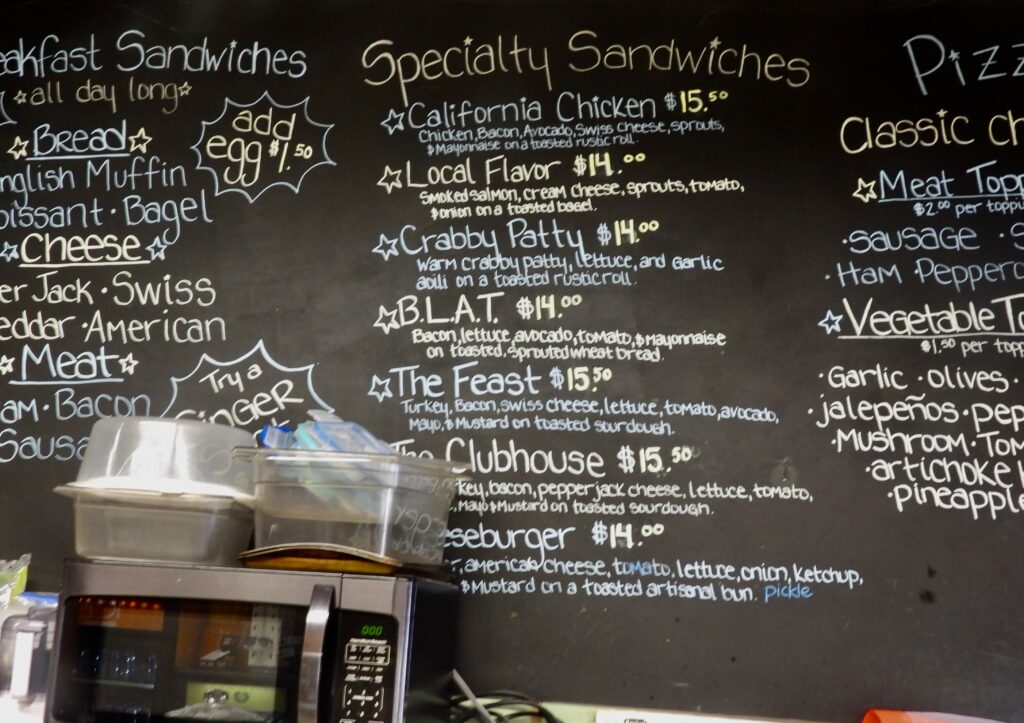 Sandwiches
☆all day long☆
☆Bread☆
English Muffin
Croissant · Bagel
☆Cheese☆
Jack · Swiss
Cheddar · American
☆Meat☆
Ham · Bacon
add
egg $1.50
Try a
GINGER
Specialty Sandwiches
☆California Chicken $15.50
Chicken, Bacon, Avocado, Swiss cheese, sprouts,
& Mayonnaise on a toasted rustic roll.
☆Local Flavor $14.00
Smoked salmon, cream cheese, sprouts, tomato,
& onion on a toasted bagel.
☆Crabby Patty $14.00
Warm crabby patty, lettuce, and Garlic
aoili on a toasted rustic roll.
☆B.L.A.T. $14.00
Bacon, lettuce, avocado, tomato, & Mayonnaise
on toasted, sprouted wheat bread.
☆The Feast $15.50
Turkey, Bacon, swiss cheese, lettuce, tomato, avocado,
Mayo, & Mustard on toasted sourdough.
The Clubhouse $15.50
bacon, pepper jack cheese, lettuce, tomato,
Mayo & Mustard on toasted sourdough.
$14.00
american cheese, tomato, lettuce, onion, ketchup,
& Mustard on a toasted artisanal bun. pickle
Classic
☆Meat
$2.00 per
· sausage ·
· Ham ·
☆Vegetable
$1.50 per
· Garlic · olives ·
· jalepeños ·
· Mushroom ·
· artichoke
· pineapple
000